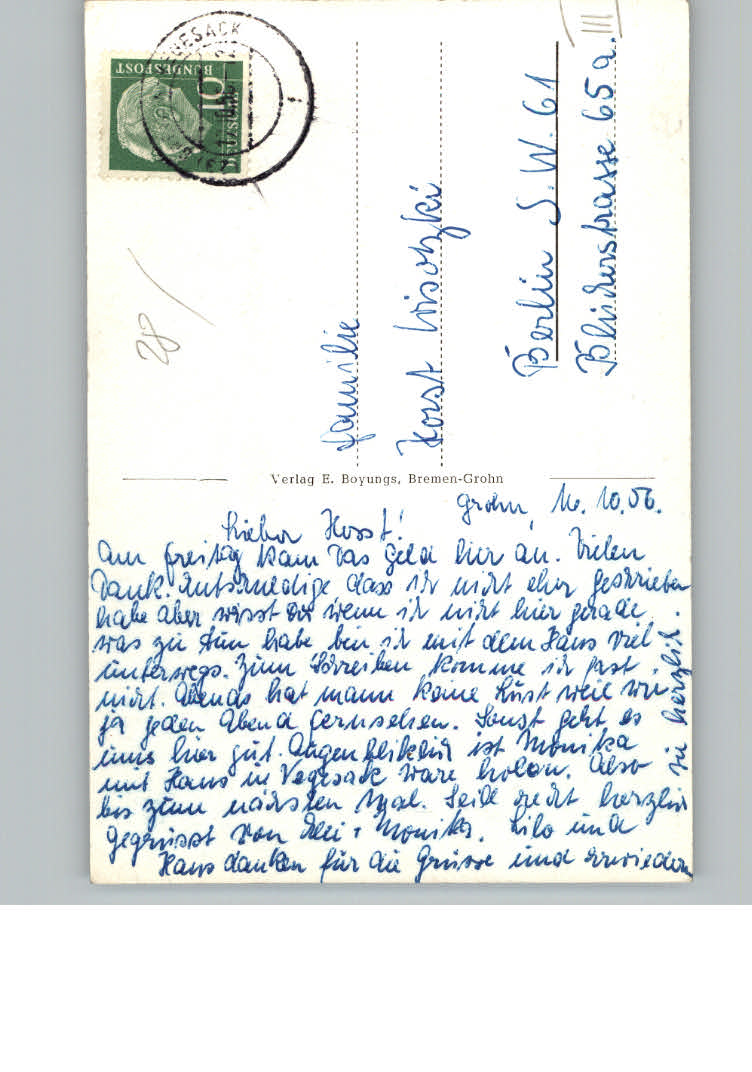 BUNDESPOST
10
28
III
Familie
Horst
Berlin S.W. 61
65a.
Verlag E. Boyungs, Bremen-Grohn
Grohn, 16.10.56.
Lieber Horst!
Am Freitag kam das Geld hier an. Vielen
Dank. Entschuldige dass ich nicht eher geschrieben
habe aber wisst Ihr wenn ich nicht hier gerade
was zu tun habe bin ich mit dem Hans viel
unterwegs. Zum Schreiben komme ich fast
nicht. Abends hat mann keine Lust weil wir
ja jeden Abend Fernsehen. Sonst geht es
uns hier gut. Augenbliklich ist Monika
mit Hans in Vegesack Ware holen. Also
bis zum nächsten Mal. Seid recht herzlich
gegrüsst von + Monika. Lilo und
Hans danken für die Grüsse und erwiedern
sie herzlich.